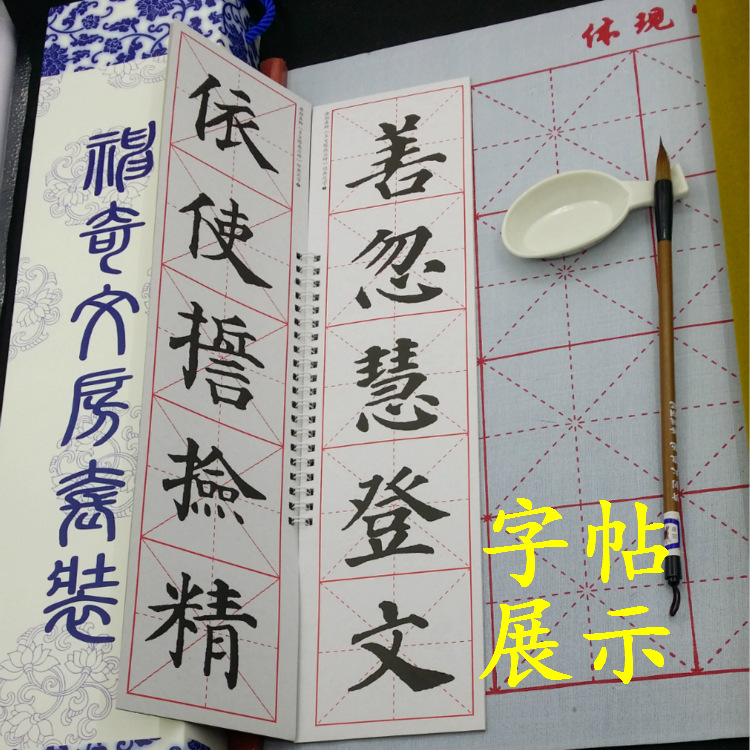 神奇文房套装
依使擔撿精
善忽慧登文
体现
字帖
展示